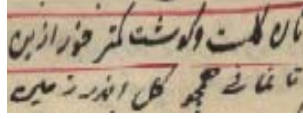 نان گلست و گوشت کمتر خور ازین
تا نمانی همچو گل اندر زمین